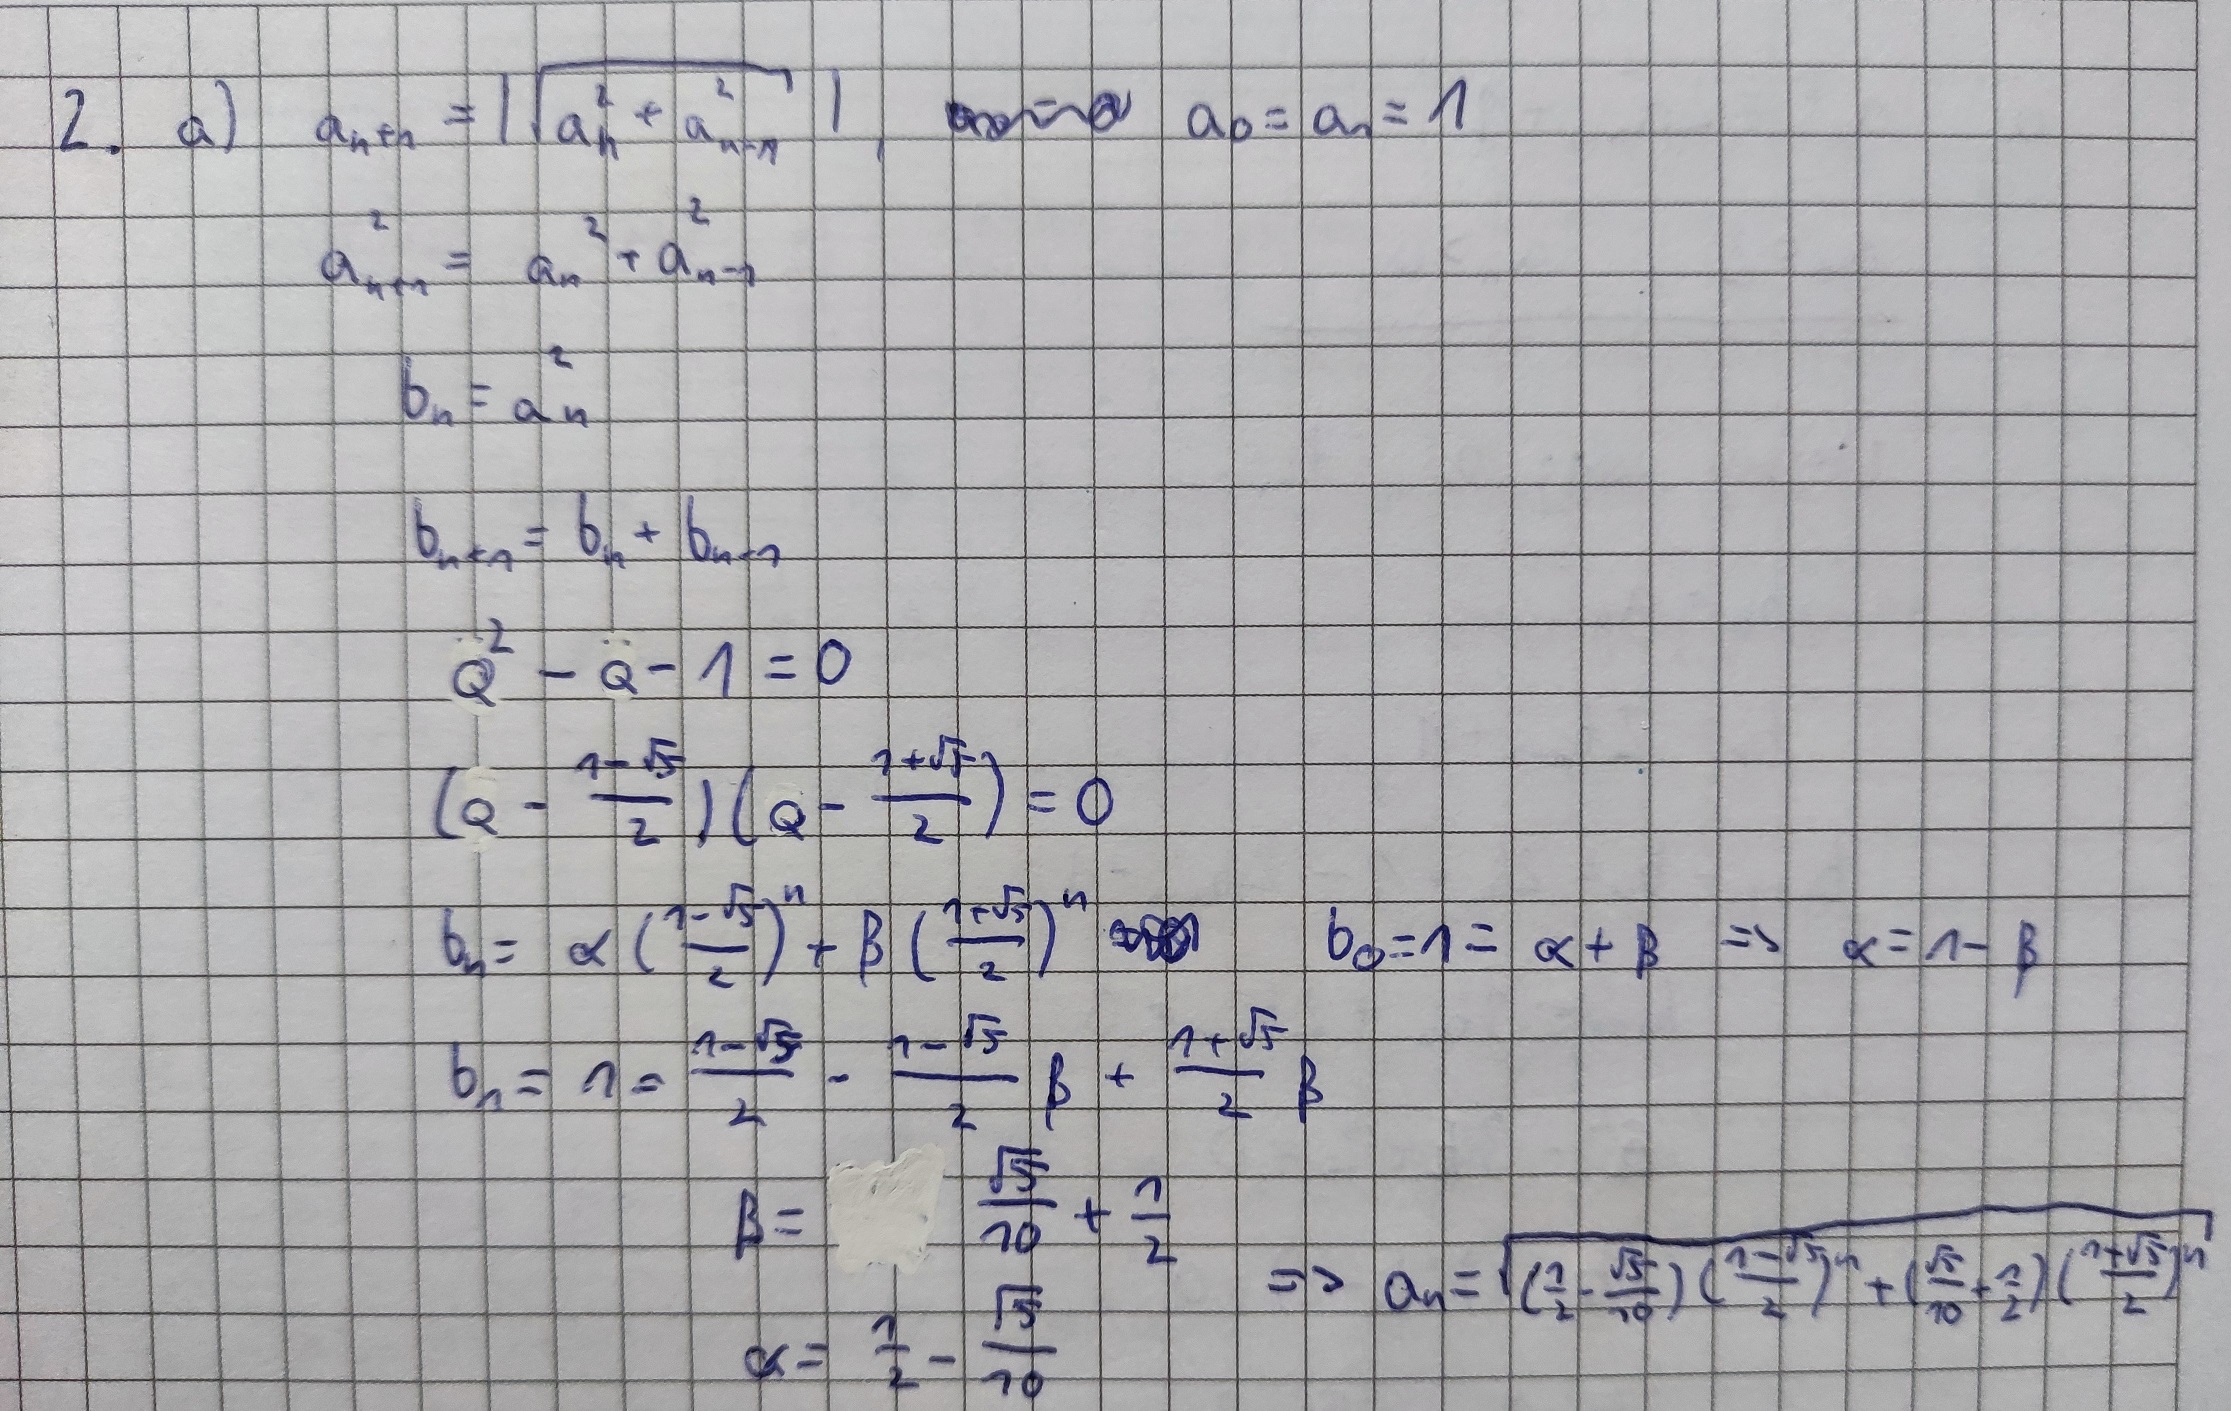 2. a) a_{n+1} = |√(a_n² + a_{n-1}²)|, a_0 = a_1 = 1
a_{n+1}² = a_n² + a_{n-1}²
b_n = a_n²
b_{n+1} = b_n + b_{n-1}
Q² - Q - 1 = 0
(Q - (1-√5)/2)(Q - (1+√5)/2) = 0
b_n = α((1-√5)/2)^n + β((1+√5)/2)^n b_0 = 1 = α + β => α = 1 - β
b_1 = 1 = (1-√5)/2 - (1-√5)/2 β + (1+√5)/2 β
β = √5/10 + 1/2
=> a_n = √((1/2 - √5/10)((1-√5)/2)^n + (√5/10 + 1/2)((1+√5)/2)^n)
α = 1/2 - √5/10